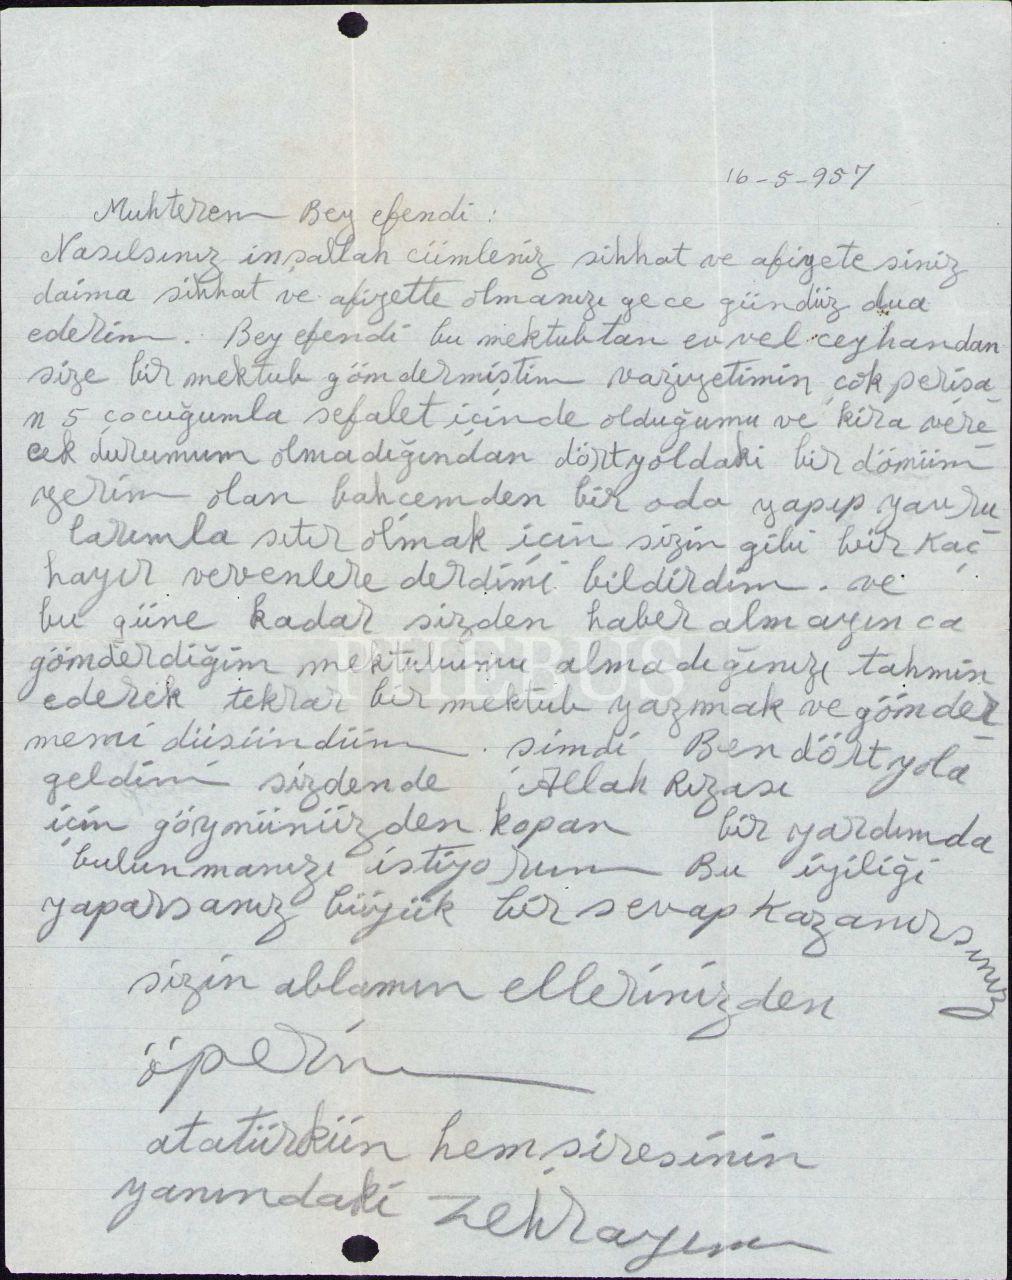 16-5-957
Muhterem Bey efendi :
Nasılsınız inşallah cümleniz sihhat ve afiyete siniz
daima sihhat ve afiyette olmanızı gece gündüz dua
ederim. Bey efendi bu mektubtan evvel ceyhandan
size bir mektub göndermiştim vaziyetimin çok perişa
n 5 çocuğumla sefalet içinde olduğumu ve kira vere
cek durumum olmadığından dörtyoldaki bir dönüm
yerim olan bahcemden bir oda yapıp yavru
larımla sıtır olmak için sizin gibi bir kaç
hayır vervenlere derdimi bildirdim. ve
bu güne kadar sizden haber almayınca
gönderdiğim mektubumu almadığınızı tahmin
ederek tekrar bir mektub yazmak ve gönder
memi düsündüm. simdi Ben dörtyola
geldim sizdende Allah Rızası
için göynünüzden kopan bir yardımda
bulunmanızı istiyorum Bu iyiliği
yaparsanız büyük bir sevap kazanırsınız
sizin ablamın ellerinizden
öperim
atatürkün hemşiresinin
yanındaki Zehrayım
PHEBUS